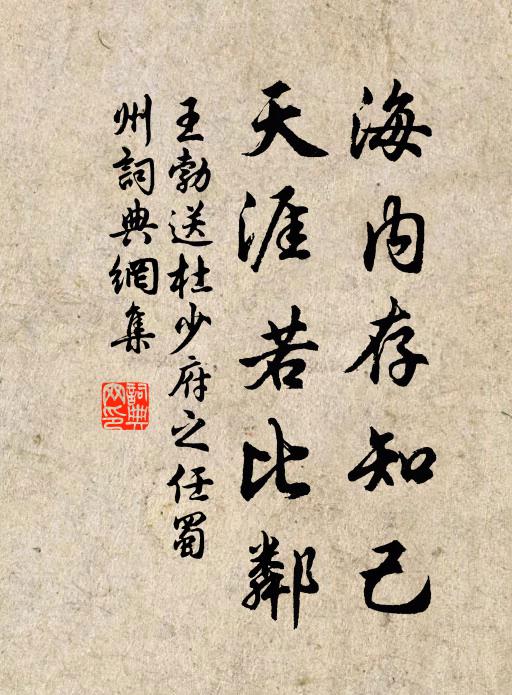 海內存知己
天涯若比鄰
王勃送杜少府之任蜀
州詞典網集
詞典
网印